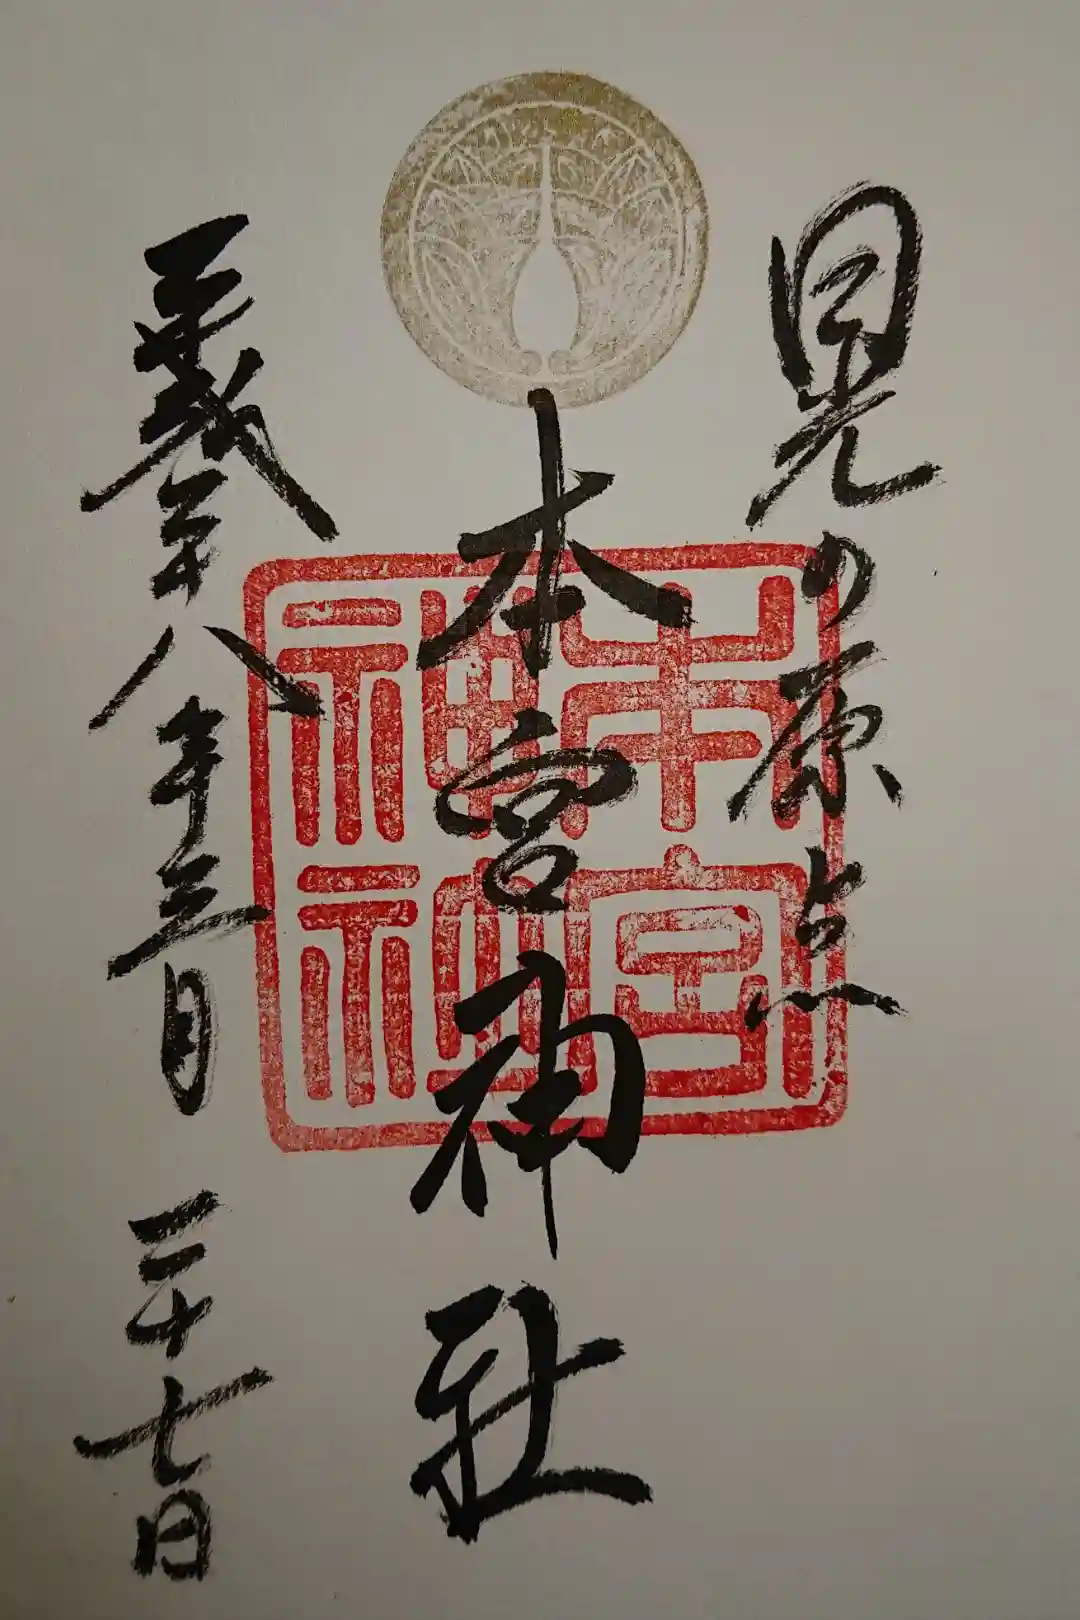 日光の原点
本宮神社
平成二十八年三月二十七日